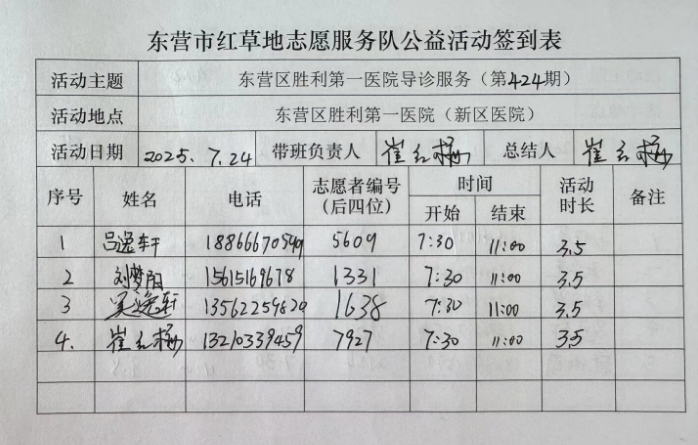 东营市红草地志愿服务队公益活动签到表
活动主题 东营区胜利第一医院导诊服务（第424期）
活动地点 东营区胜利第一医院（新区医院）
活动日期 2025.7.24 带班负责人 崔红梅 总结人 崔红梅
序号 姓名 电话 志愿者编号（后四位） 时间 开始 结束 活动时长 备注
1 吕逸轩 5609 7:30 11:00 3.5
2 刘梦阳 15615169678 1331 7:30 11:00 3.5
3 逸轩 13562259820 1638 7:30 11:00 3.5
4. 崔红梅 13210339459 7927 7:30 11:00 3.5